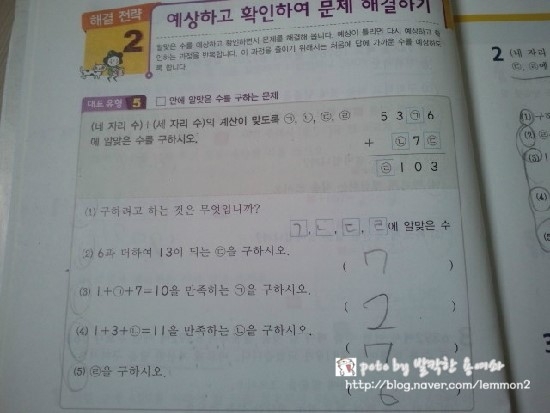 해결 전략
2
예상하고 확인하여 문제 해결하기
알맞은 수를 예상하고 확인하면서 문제를 해결해 봅니다. 예상이 틀리면 다시 예상하고 확
인하는 과정을 반복합니다. 이 과정을 줄이기 위해서는 처음에 답에 가까운 수를 예상하도
록 합니다.
대표 유형 5 □ 안에 알맞은 수를 구하는 문제
(네 자리 수)+(세 자리 수)의 계산이 맞도록 ㉠, ㉡, ㉢, ㉣
에 알맞은 수를 구하시오.
5 3 ㉠ 6
+ ㉡ 7 ㉢
㉣ 1 0 3
(1) 구하려고 하는 것은 무엇입니까?
ㄱ, ㄴ, ㄷ, ㄹ에 알맞은 수
(2) 6과 더하여 13이 되는 ㉢을 구하시오.
( 7 )
(3) 1+㉠+7=10을 만족하는 ㉠을 구하시오.
( 2 )
(4) 1+3+㉡=11을 만족하는 ㉡을 구하시오.
( 7 )
(5) ㉣을 구하시오.
( 6 )
2 (네 자리
poto by 발칙한
http://blog.naver.com/lemmon2